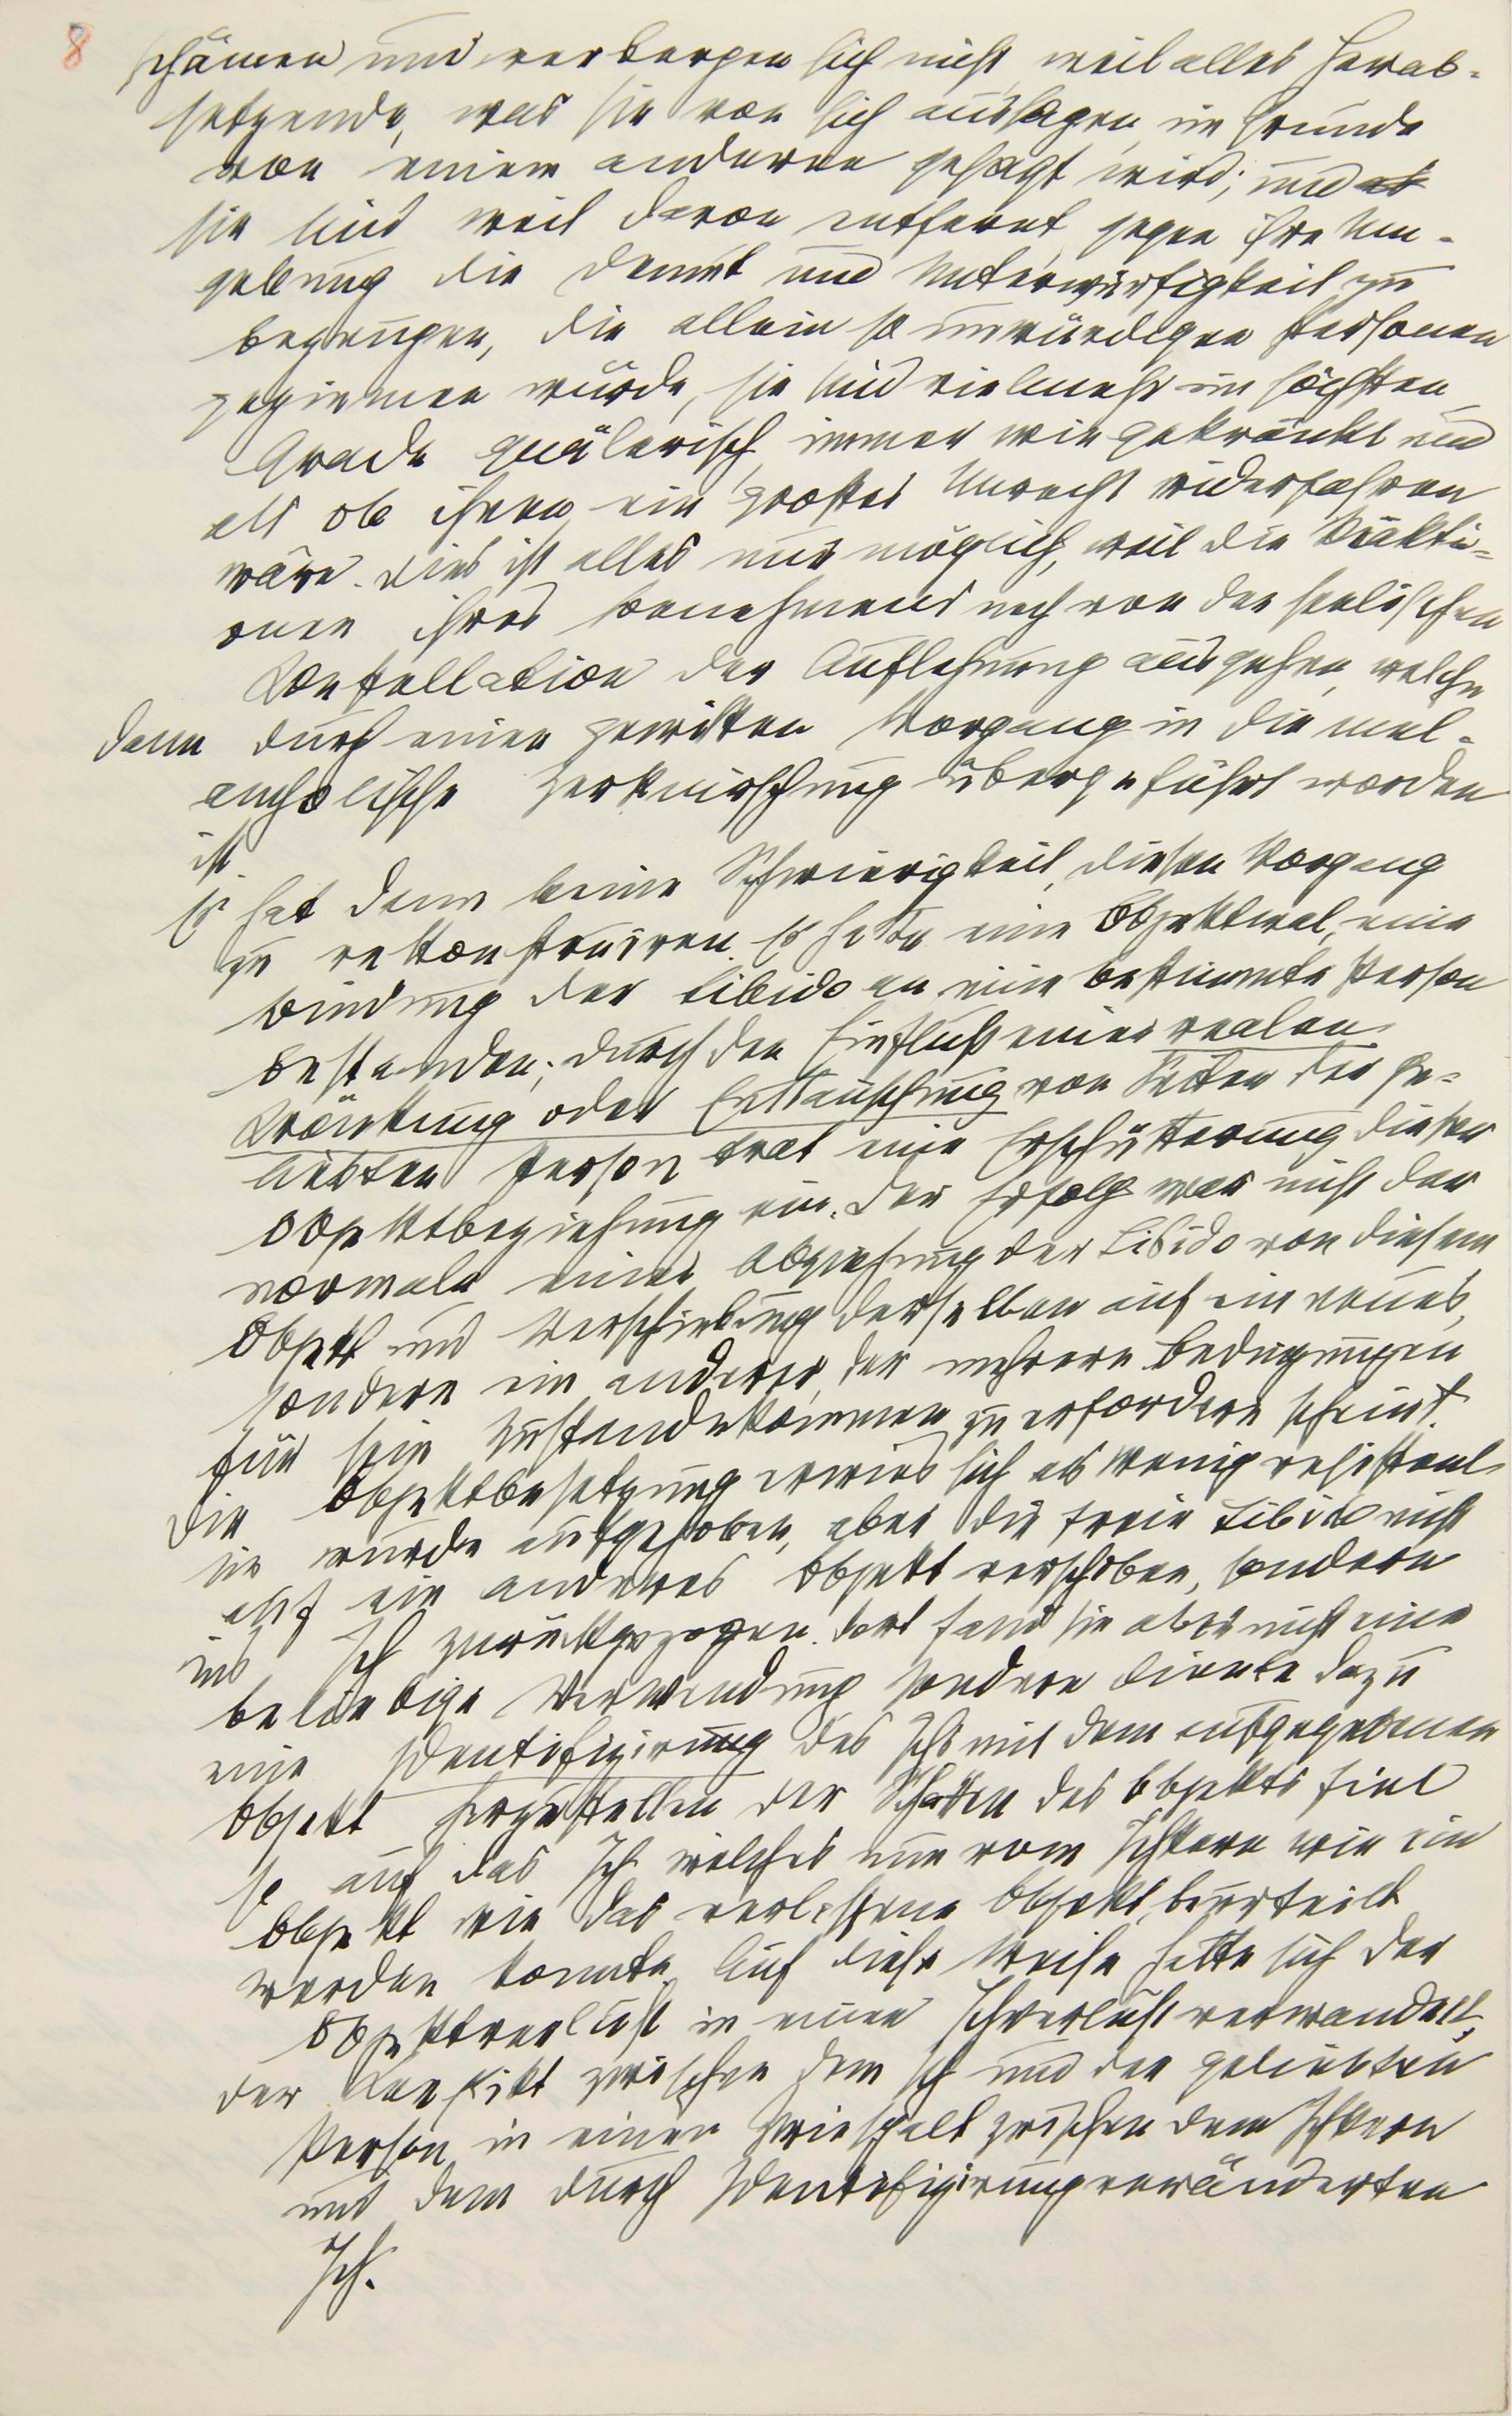 8
schämen und verbergen sich nicht, weil alles Herab-
setzende, was sie von sich aussagen, im Grunde
von einem anderen gesagt wird; und
sie sind weit davon entfernt, gegen ihre Um-
gebung die Demut und Unterwürfigkeit zu
bezeugen, die allein so unwürdigen Personen
geziemen würde, sie sind vielmehr im höchsten
Grade quälerisch, immer wie gekränkt und
als ob ihnen ein großes Unrecht widerfahren
wäre. Dies ist alles nur möglich, weil die Reakti-
onen ihres Benehmens noch von der seelischen
Konstellation der Auflehnung ausgehen, welche
dann durch einen gewissen Vorgang in die mel-
ancholische Zerknirschung übergeführt worden
ist
Es hat dann keine Schwierigkeit, diesen Vorgang
zu rekonstruiren. Es hatte eine Objektwal, eine
Bindung der Libido an eine bestimmte Person
bestanden; durch den Einfluß einer realen
Kränkung oder Enttäuschung von Seiten der ge-
liebten Person trat eine Erschütterung dieser
Objektbeziehung ein. Der Erfolg war nicht der
normale einer Abziehung der Libido von diesem
Objekt und Verschiebung derselben auf ein neues,
sondern ein anderer, der mehrere Bedingungen
für sein Zustandekommen zu erfordern scheint.
Die Objektbesetzung erwies sich als wenig resistent
sie wurde aufgehoben, aber die freie Libido nicht
auf ein anderes Objekt verschoben, sondern
ins Ich zurückgezogen. Dort fand sie aber nicht eine
beliebige Verwendung sondern diente dazu
eine Identifizirung des Ichs mit dem aufgegebenen
Objekt herzustellen Der Schatten des Objekts fiel
so auf das Ich welches nun vom Ichkern wie ein
Objekt wie das verlassene Objekt, beurteilt
werden konnte. Auf diese Weise hatte sich der
Objektverlust in einen Ichverlust verwandelt,
der Konflikt zwischen dem Ich und der geliebten
Person in einen Zwiespalt zwischen dem Ichkern
und dem durch Identifizirung veränderten
Ich.